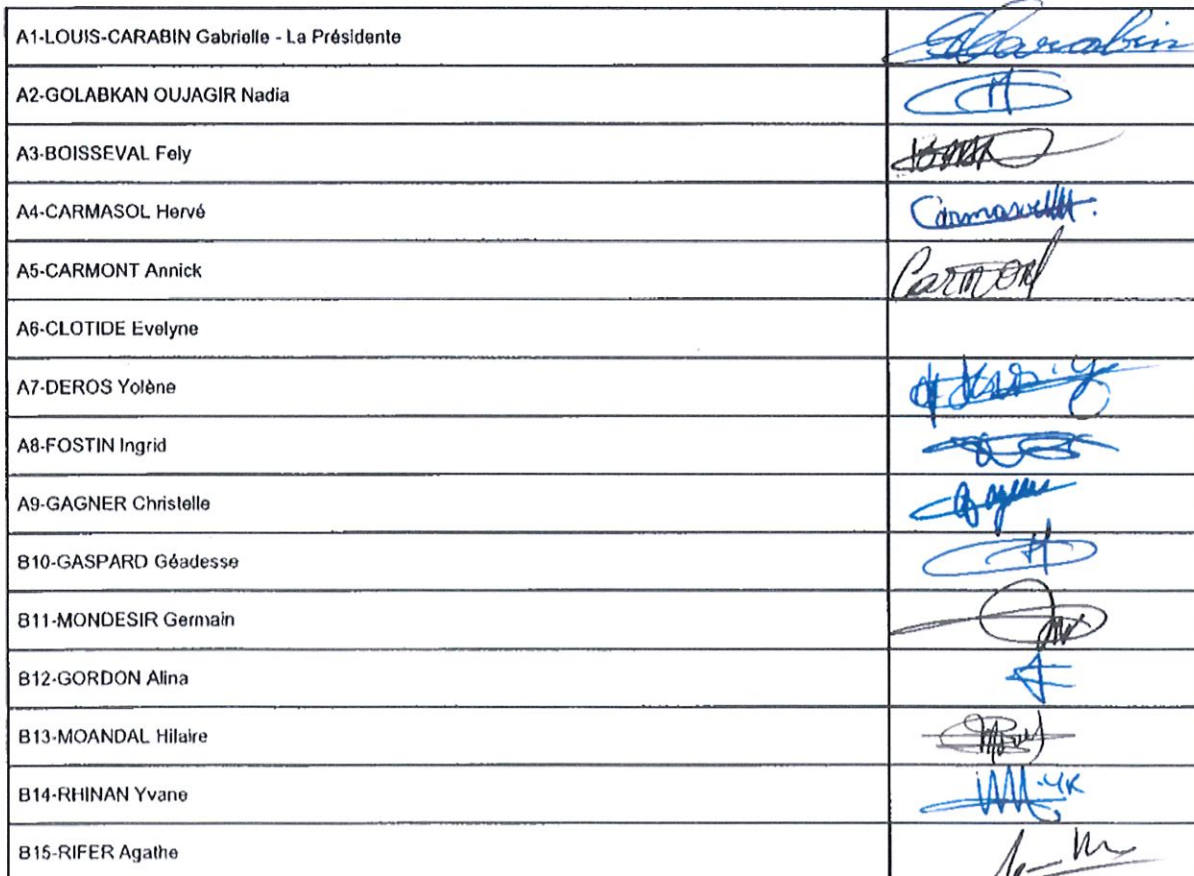 A1-LOUIS-CARABIN Gabrielle - La Présidente
A2-GOLABKAN OUJAGIR Nadia
A3-BOISSEVAL Fely
A4-CARMASOL Hervé
A5-CARMONT Annick
A6-CLOTIDE Evelyne
A7-DEROS Yolène
A8-FOSTIN Ingrid
A9-GAGNER Christelle
B10-GASPARD Géadesse
B11-MONDESIR Germain
B12-GORDON Alina
B13-MOANDAL Hilaire
B14-RHINAN Yvane
B15-RIFER Agathe